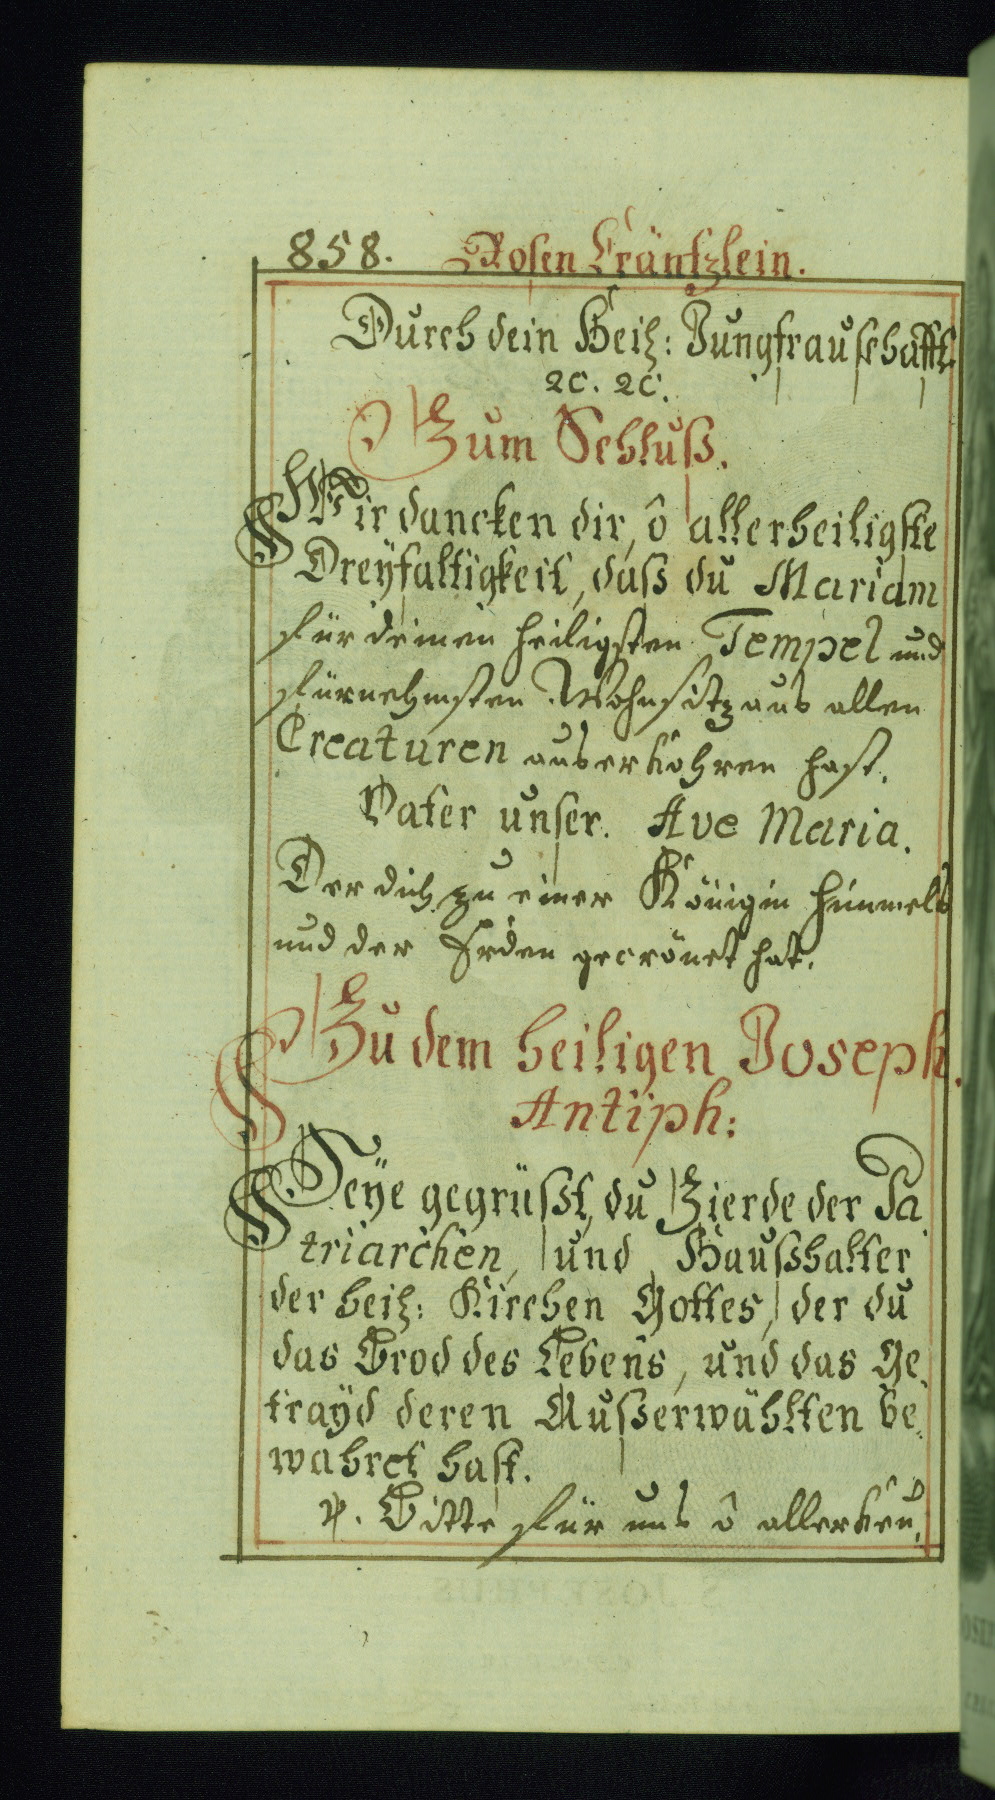 858. Rosen Cräntzlein.
Durch dein Heil: Jungfrauschafft
ꝛc. ꝛc.
Zum Schluß.
Wir dancken dir, ô allerheiligste
Dreyfaltigkeit, daß du Mariam
für deinen heiligsten Tempel und
fürnehmsten Wohnsitz aus allen
Creaturen auserkohren hast.
Vater unser. Ave Maria.
Der dich zu einer Königin himmels
und der Erden gecrönet hat.
Zu dem heiligen Joseph.
Antiph:
Seÿe gegrüßt, du Zierde der Pa
triarchen, und Haußhalter
der heil: Kirchen Gottes, der du
das Brod des Lebens, und das Ge,
traÿd deren Außerwählten be,
wahret hast.
℣. Bitte für uns ô allerkeu,